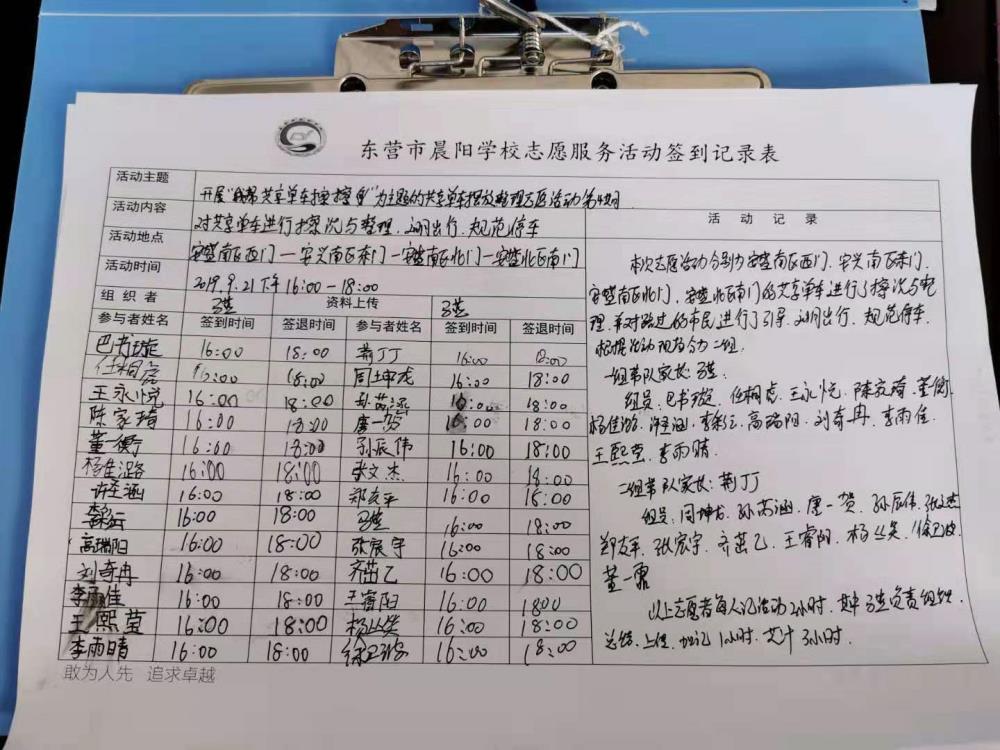 东营市晨阳学校志愿服务活动签到记录表
活动主题 开展"共享单车擦擦"为主题的共享单车摆放整理志愿活动第期
活动内容 对共享单车进行擦拭与整理.文明出行.规范停车
活动地点 安盛南区西门—安兴南区东门—安盛南区北门—安盛北区南门
活动时间 2019.9.21下午16:00-18:00
组织者 资料上传
参与者姓名 签到时间 签退时间 参与者姓名 签到时间 签退时间
巴书璇 16:00 18:00 荆丁丁 16:00 18:00
任桐 16:00 18:00 同坤龙 16:00 18:00
王永悦 16:00 18:00 孙芮涵 16:00 18:00
陈家琦 16:00 18:00 唐一贺 16:00 18:00
董衡 16:00 18:00 孙辰伟 16:00 18:00
杨佳潞 16:00 18:00 张文杰 16:00 18:00
许圣涵 16:00 18:00 郑友平 16:00 18:00
16:00 18:00 16:00 18:00
高瑞阳 16:00 18:00 张宸宇 16:00 18:00
刘奇冉 16:00 18:00 齐茁乙 16:00 18:00
李雨佳 16:00 18:00 王睿阳 16:00 1800
王熙莹 16:00 18:00 杨丛笑 16:00 18:00
李雨晴 16:00 18:00 16:00 18:00
敢为人先 追求卓越
活动记录
本次志愿活动分别为安盛南区西门.安兴南区东门.
安盛南区北门.安盛北区南门的共享单车进行了擦拭与整
理.并对路过的市民进行了引导.文明出行.规范停车.
根据活动现场分为二组.
一组带队家长:
组员:巴书璇.任桐.王永悦.陈家琦.董衡
杨佳潞.许圣涵.高瑞阳.刘奇冉.李雨佳.
王熙莹.李雨晴.
二组带队家长:荆丁丁
组员:同坤龙.孙芮涵.唐一贺.孙辰伟.张文杰
郑友平.张宸宇.齐茁乙.王睿阳.杨丛笑.
董一
以上志愿者每人记活动2小时.其中负责组织.
总结.上传.加记1小时.共计3小时.